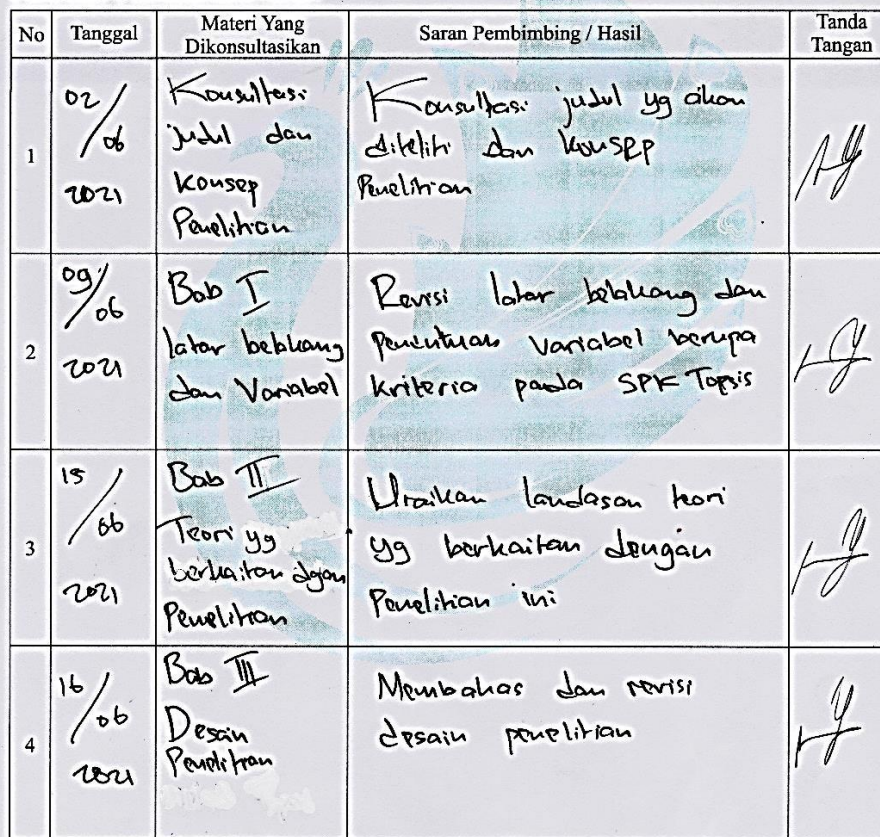 No Tanggal Materi Yang Dikonsultasikan Saran Pembimbing / Hasil Tanda Tangan
1
02/06
2021
Konsultasi
judul dan
konsep
Penelitian
Konsultasi judul yg akan
diteliti dan konsep
Penelitian
2
09/06
2021
Bab I
latar belakang
dan Variabel
Revisi latar belakang dan
penentuan variabel berupa
kriteria pada SPK Topsis
3
15/06
2021
Bab II
Teori yg
berkaitan dgan
Penelitian
Uraikan landasan teori
yg berkaitan dengan
Penelitian ini
4
16/06
2021
Bab III
Desain
Penelitian
Membahas dan revisi
desain penelitian